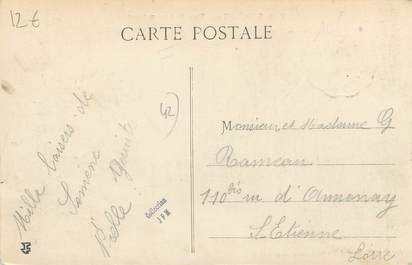 12 €
CARTE POSTALE
Mille baisers de
Belle
42
Collection
Monsieur et Madame G
Rameau
110 bis rue d'Annonay
St Etienne
Loire